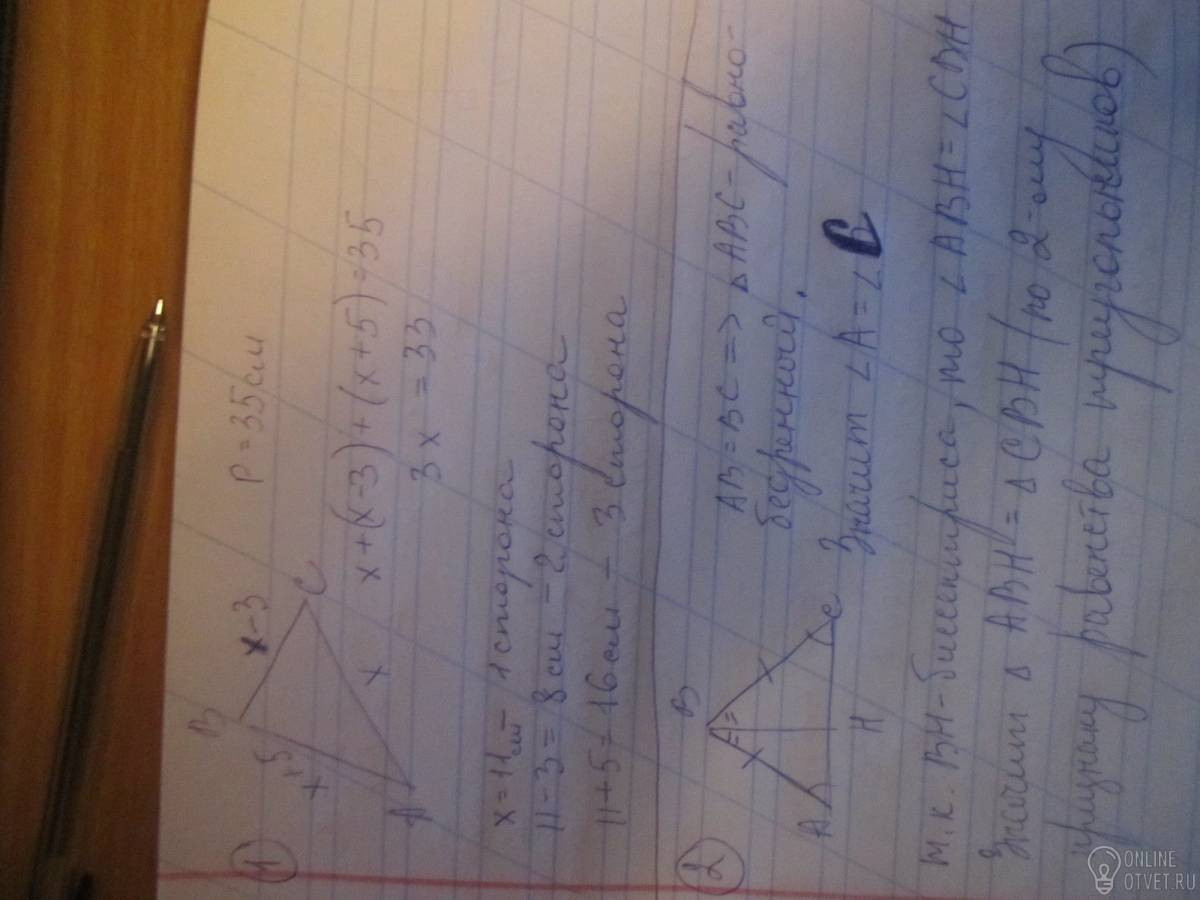 1
B
x-3
P = 35см
x+5
C
x
A
x+(x-3)+(x+5)=35
3x = 33
x=11см - 1 сторона
11-3= 8 см - 2 сторона
11+5= 16 см - 3 сторона
2
B
A
C
H
AB = BC => ΔABC - равно-
бедренный.
Значит ∠A = ∠C
т.к. BH - биссектриса, то ∠ABH = ∠CBH
Значит Δ ABH = Δ CBH (по 2-ому
признаку равенства треугольников)
ONLINE
OTVET.RU